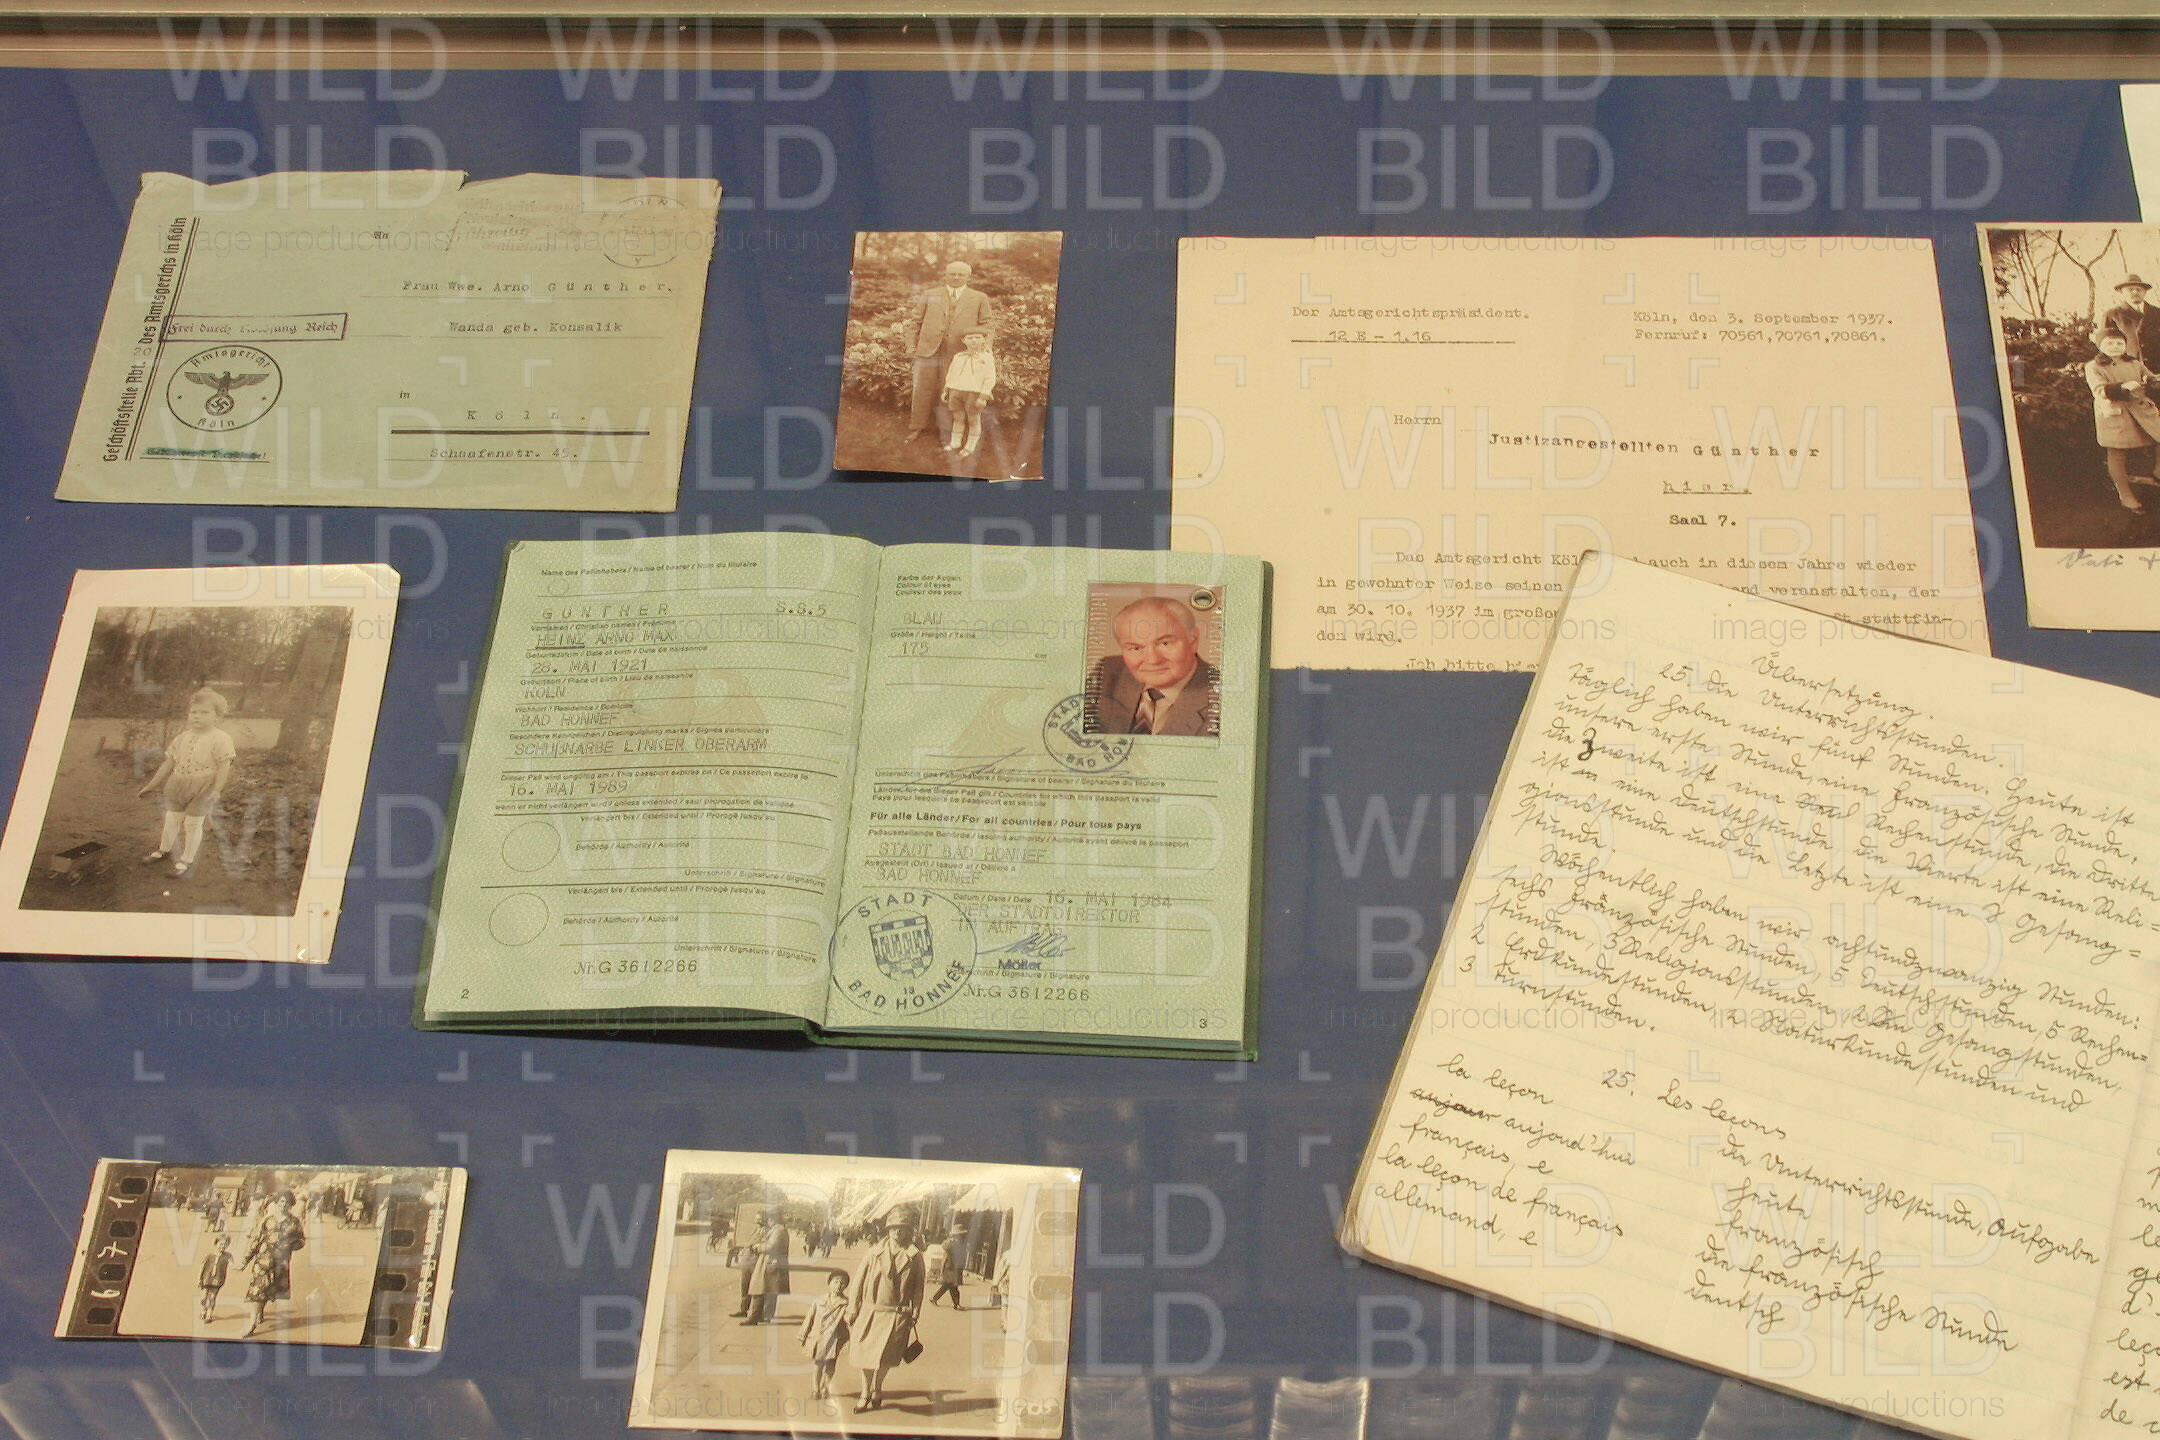 Geschäftsstelle Abt. 20 des Amtsgerichts in Köln
An
Frau Wwe. Arno Günther.
Wanda geb. Konsalik
in
Köln.
Schaafenstr. 45.
Frei durch Ablösung Reich
Amtsgericht
Köln
Der Amtsgerichtspräsident.
12 E - 1.16
Köln, den 3. September 1937.
Fernruf: 70561,70761,70861.
Herrn
Justizangestellten Günther
hier.
Saal 7.
Das Amtsgericht Köl
auch in diesem Jahre wieder
in gewohnter Weise seinen
end veranstalten, der
am 30. 10. 1937 im große
st stattfin-
den wird.
Ich bitte
Vati
Name des Paßinhabers / Name of bearer / Nom du titulaire
GÜNTHER S.S.5
Vornamen / Christian names / Prénoms
HEINZ ARNO MAX
Geburtsdatum / Date of birth / Date de naissance
28. MAI 1921
Geburtsort / Place of birth / Lieu de naissance
KÖLN
Wohnort / Residence / Domicile
BAD HONNEF
Besondere Kennzeichen / Distinguishing marks / Signes particuliers
SCHUßNARBE LINKER OBERARM
Dieser Paß wird ungültig am / This passport expires on / Ce passeport expire le
16. MAI 1989
wenn er nicht verlängert wird / unless extended / sauf prorogation de validité
Verlängert bis / Extended until / Prorogé jusqu'au
Behörde / Authority / Autorité
Unterschrift / Signature / Signature
Verlängert bis / Extended until / Prorogé jusqu'au
Behörde / Authority / Autorité
Unterschrift / Signature / Signature
Nr. G 3612266
2
Farbe der Augen
Colour of eyes
Couleur des yeux
BLAU
Größe / Height / Taille
175 cm
STADT
BAD HON
Unterschrift des Paßinhabers / Signature of bearer / Signature du titulaire
Länder, für die dieser Paß gilt / Countries for which this passport is valid
Pays pour lesquels ce passeport est valable
Für alle Länder / For all countries / Pour tous pays
Paßausstellende Behörde / Issuing authority / Autorité ayant délivré le passeport
STADT BAD HONNEF
Ausgestellt (Ort) / Issued at / Délivré à
BAD HONNEF
Datum / Date / Date 16. MAI 1984
DER STADTDIREKTOR
IM AUFTRAG
Möller
Unterschrift / Signature / Signature
STADT
BAD HONNEF
13
Nr. G 3612266
3
Übersetzung.
25. Die Unterrichtsstunden.
Täglich haben wir fünf Stunden. Heute ist
unsere erste Stunde, eine Französische Stunde,
die Zweite ist eine Rechenstunde, die Dritte
ist eine Deutschstunde, die Vierte ist eine Reli=
gionsstunde und die Letzte ist eine Gesang=
stunde.
Wöchentlich haben wir achtundzwanzig Stunden:
sechs Französische Stunden, 5 Deutschstunden, 5 Rechen=
stunden, 3 Religionsstunden, 2 Gesangstunden,
2 Erdkundestunden, 2 Naturkundestunden und
3 Turnstunden.
25. Les leçons
la leçon die Unterrichtsstunde, Aufgabe
aujour aujoud'hui heute
français, e französisch
la leçon de français die französische Stunde
allemand, e deutsch
607 1
WILD
BILD
image productions